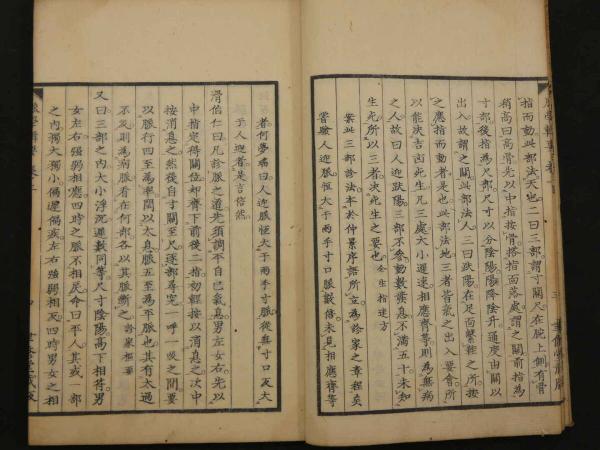 指而動此部法天也二曰三部謂寸關尺在腕上側有骨
稍高曰高骨先以中指按骨搭指面落處謂之關前指為
寸部後指為尺部尺寸以分陰陽陽降陰升通度由關以
出入故謂之關此部法人三曰趺陽在足面繫鞋之所按
之應指而動者是也此部法地三者皆氣之出入要會所
以能決吉凶死生凡三處大小遲速相應齊等則為無病
之人故曰人迎趺陽三部不參動數發息不滿五十未知
生死所以三者決死生之要也 全生指迷方
案此三部診法本於仲景序語所立為診家之章程矣
嘗驗人迎脈恆大于兩手寸口脈數倍未見相應齊等
者何夢瑤曰人迎脈恆大于兩手寸脈從無寸口反大
于人迎者是言信然
滑伯仁曰凡診脈之道先須調平自己氣息男左女右先以
中指定得關位却齊下前後二指初輕按以消息之次中
按消息之然後自寸關至尺逐部尋究一呼一吸之間要
以脈行四至為率閏以太息脈五至為平脈也其有太過
不及則為病脈看在何部各以其脈斷之 診家樞要
又曰三部之內大小浮沉遲數同等尺寸陰陽高下相符男
女左右強弱相應四時之脈不相戾命曰平人其或一部
之內獨大獨小偏遲偏疾左右強弱相反四時男女之相